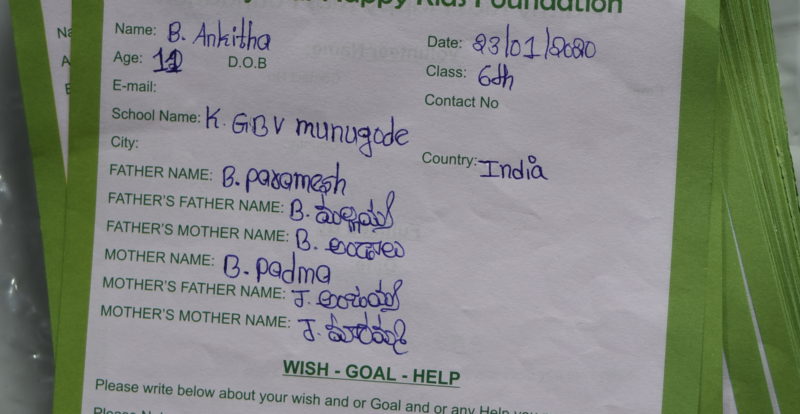 Happy Kids Foundation
Name: B. Ankitha
Date: 23/01/2020
Age: 11
D.O.B
Class: 6th
E-mail:
Contact No
School Name: K. GBV munugode
City:
Country: India
FATHER NAME: B. paramesh
FATHER'S FATHER NAME: B. మల్లయ్య
FATHER'S MOTHER NAME: B. అండాలు
MOTHER NAME: B. padma
MOTHER'S FATHER NAME: J. అంజయ్య
MOTHER'S MOTHER NAME: J. మారమ్మ
WISH - GOAL - HELP
Please write below about your wish and or Goal and or any Help you